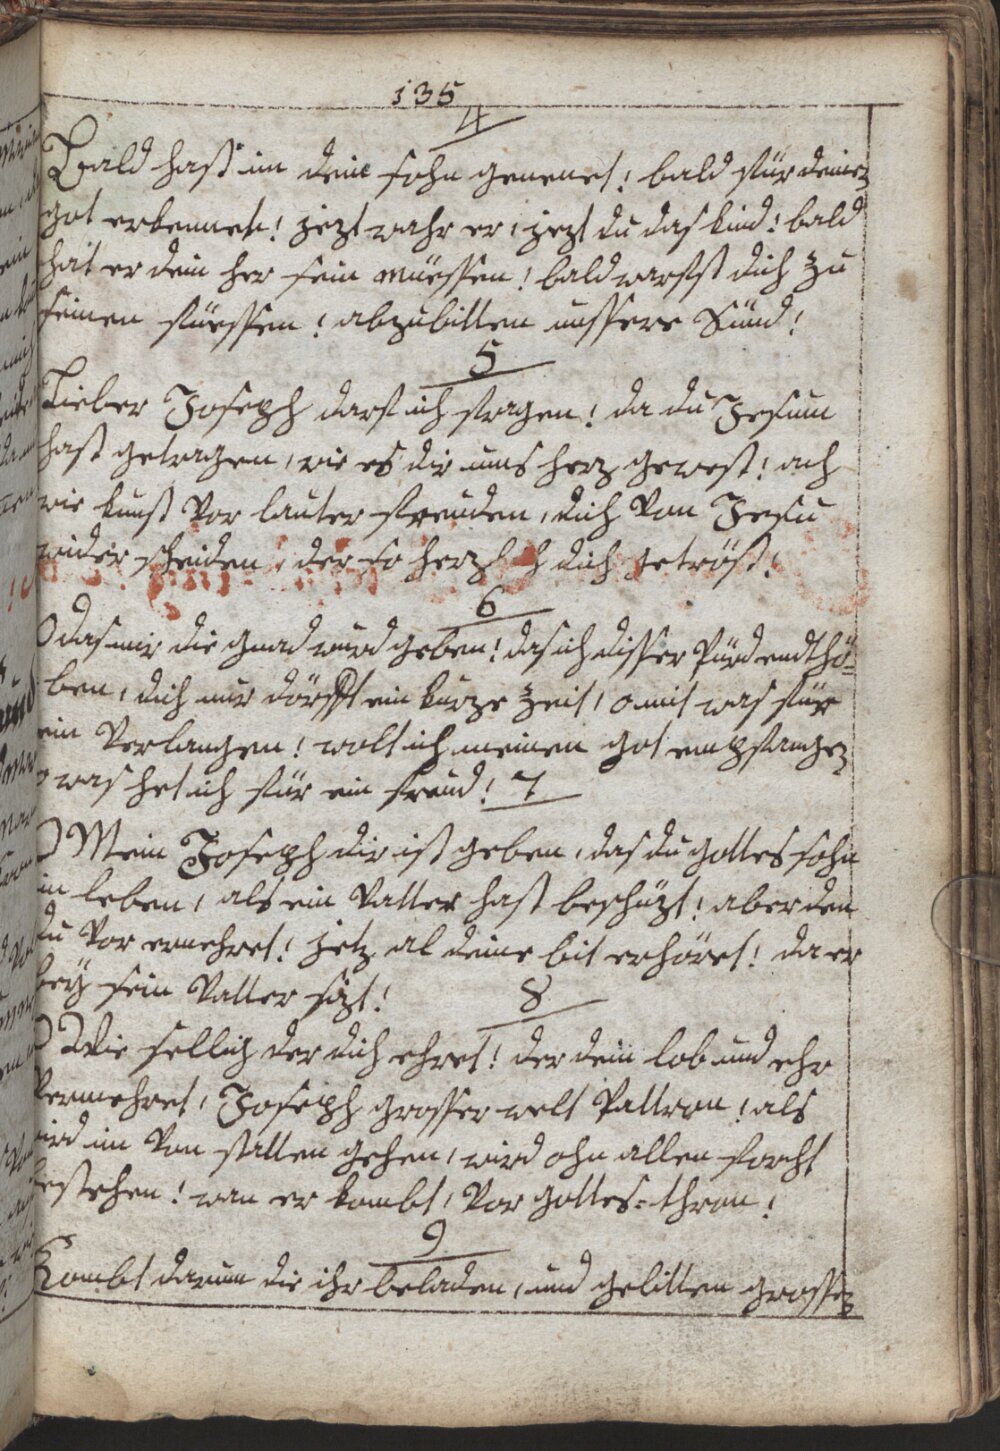 135
4
Bald hast im dein sohn genenet! bald für deinen
got erkennet! jezt wahr er, jezt du das kind! bald
hat er dein her sein müessen! bald warfst dich zu
seinen füessen! abzubitten unssere Sünd!
5
Lieber Joseph darf ich fragen! da du Jesum
hast getragen, wie es dir ums herz gewest! ach
wie kunst vor lauter freuden, dich von Jesu
wider scheiden, der so herzlich dich getröst!
6
O das mir die gnad wurd geben! das ich disser Pürd endthö-
ben, dich nur dörfft ein kurze zeit, o mit was für
ein verlangen! wolt ich meinen got empfangen
o was het ich für ein freud! 7
O Mein Joseph dir ist geben, das du gottes sohn
im leben, als ein vatter hast beschüzt! aber den
du vor ernehret! jetz al deine bit erhöret! da er
bey sein vatter sizt!
8
O Wie sellig der dich ehret! der dein lob und ehr
vermehret, Joseph grosser welt Pattron! als
wird im von statten gehen, wird ohn allen forcht
bestehen! wan er kombt, vor gottes-thron!
9
Kombt darum die ihr beladen, und gelitten grossen